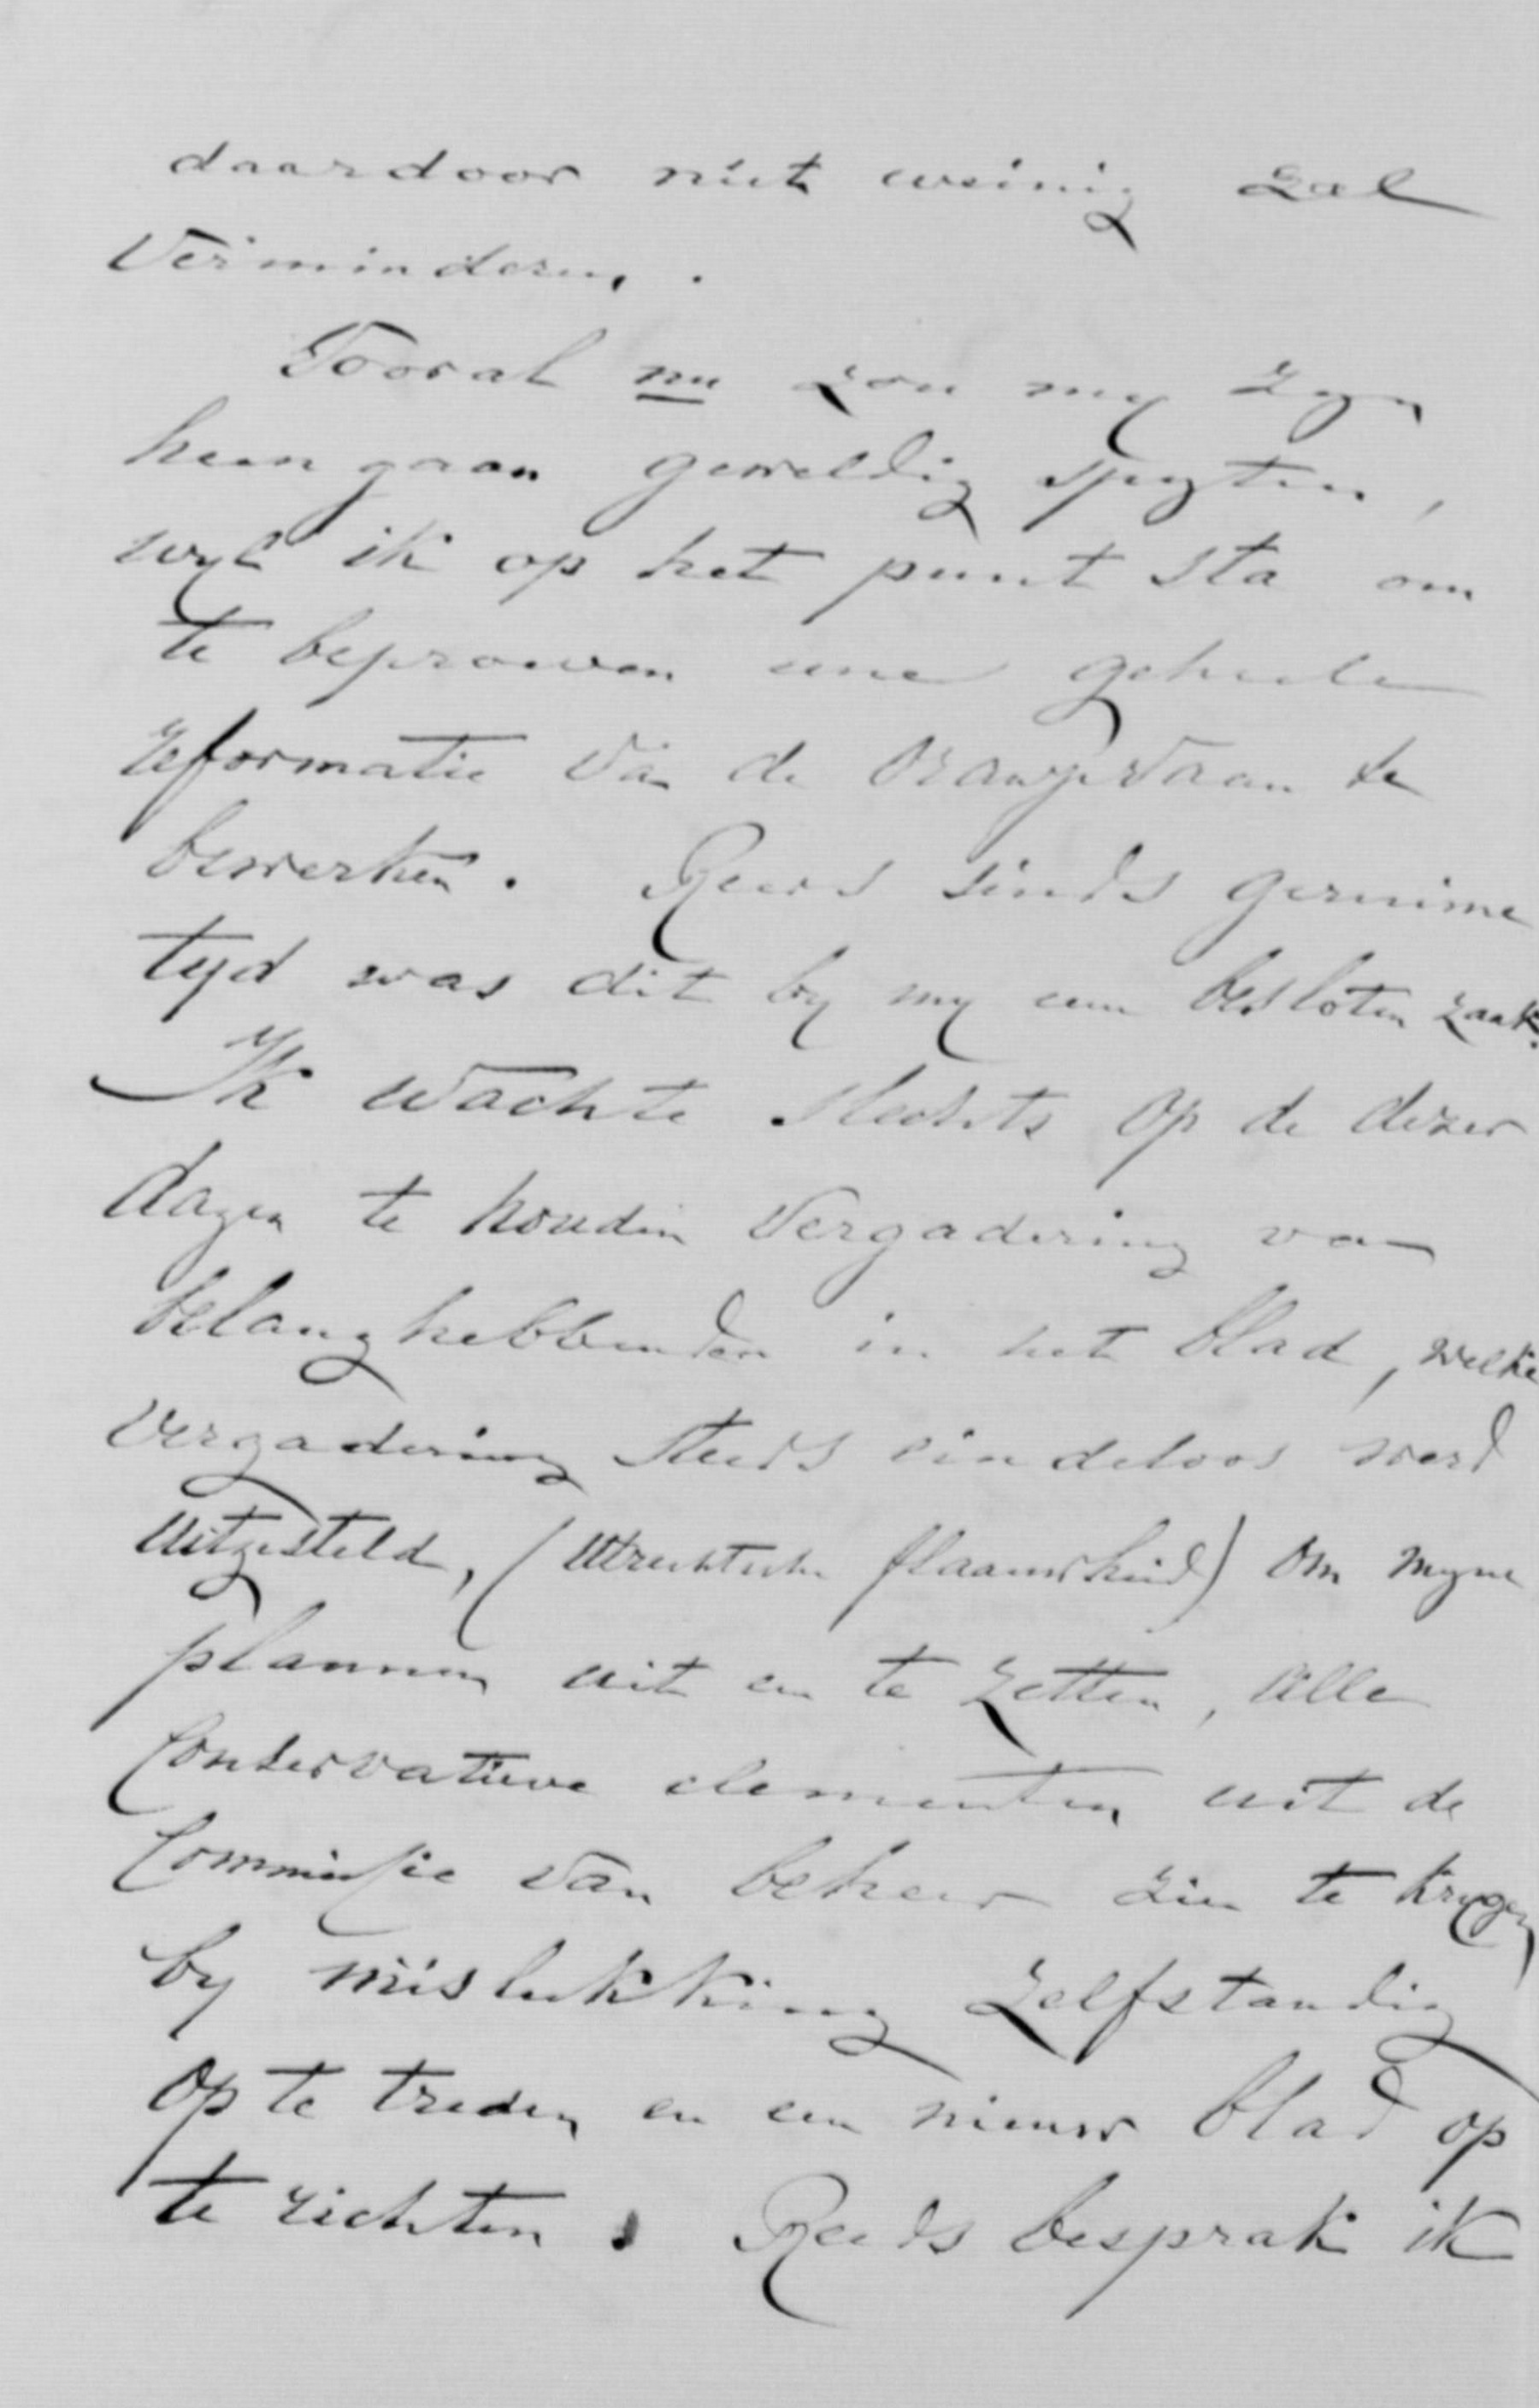 daardoor niet weinig zal
verminderen.
Vooral nu zou my zyn
heengaan geweldig spyten,
wyl ik op het punt sta om
te beproeven eene geheele
reformatie van de Oranjevaan te
bewerken. Reeds sinds geruime
tyd was dit by my een besloten zaak.
Ik wachte slechts op de dezer
dagen te houden Vergadering van
belanghebbenden in het blad, welke
Vergadering steeds eindeloos werd
uitgesteld, (Utrechtsche flaauwheid) om myne
plannen uit een te zetten, alle
Conservatieve elementen uit de
Commissie van beheer zien te krygen
by mislukking zelfstandig
op te treden en een nieuw blad op
te richten. Reeds besprak ik